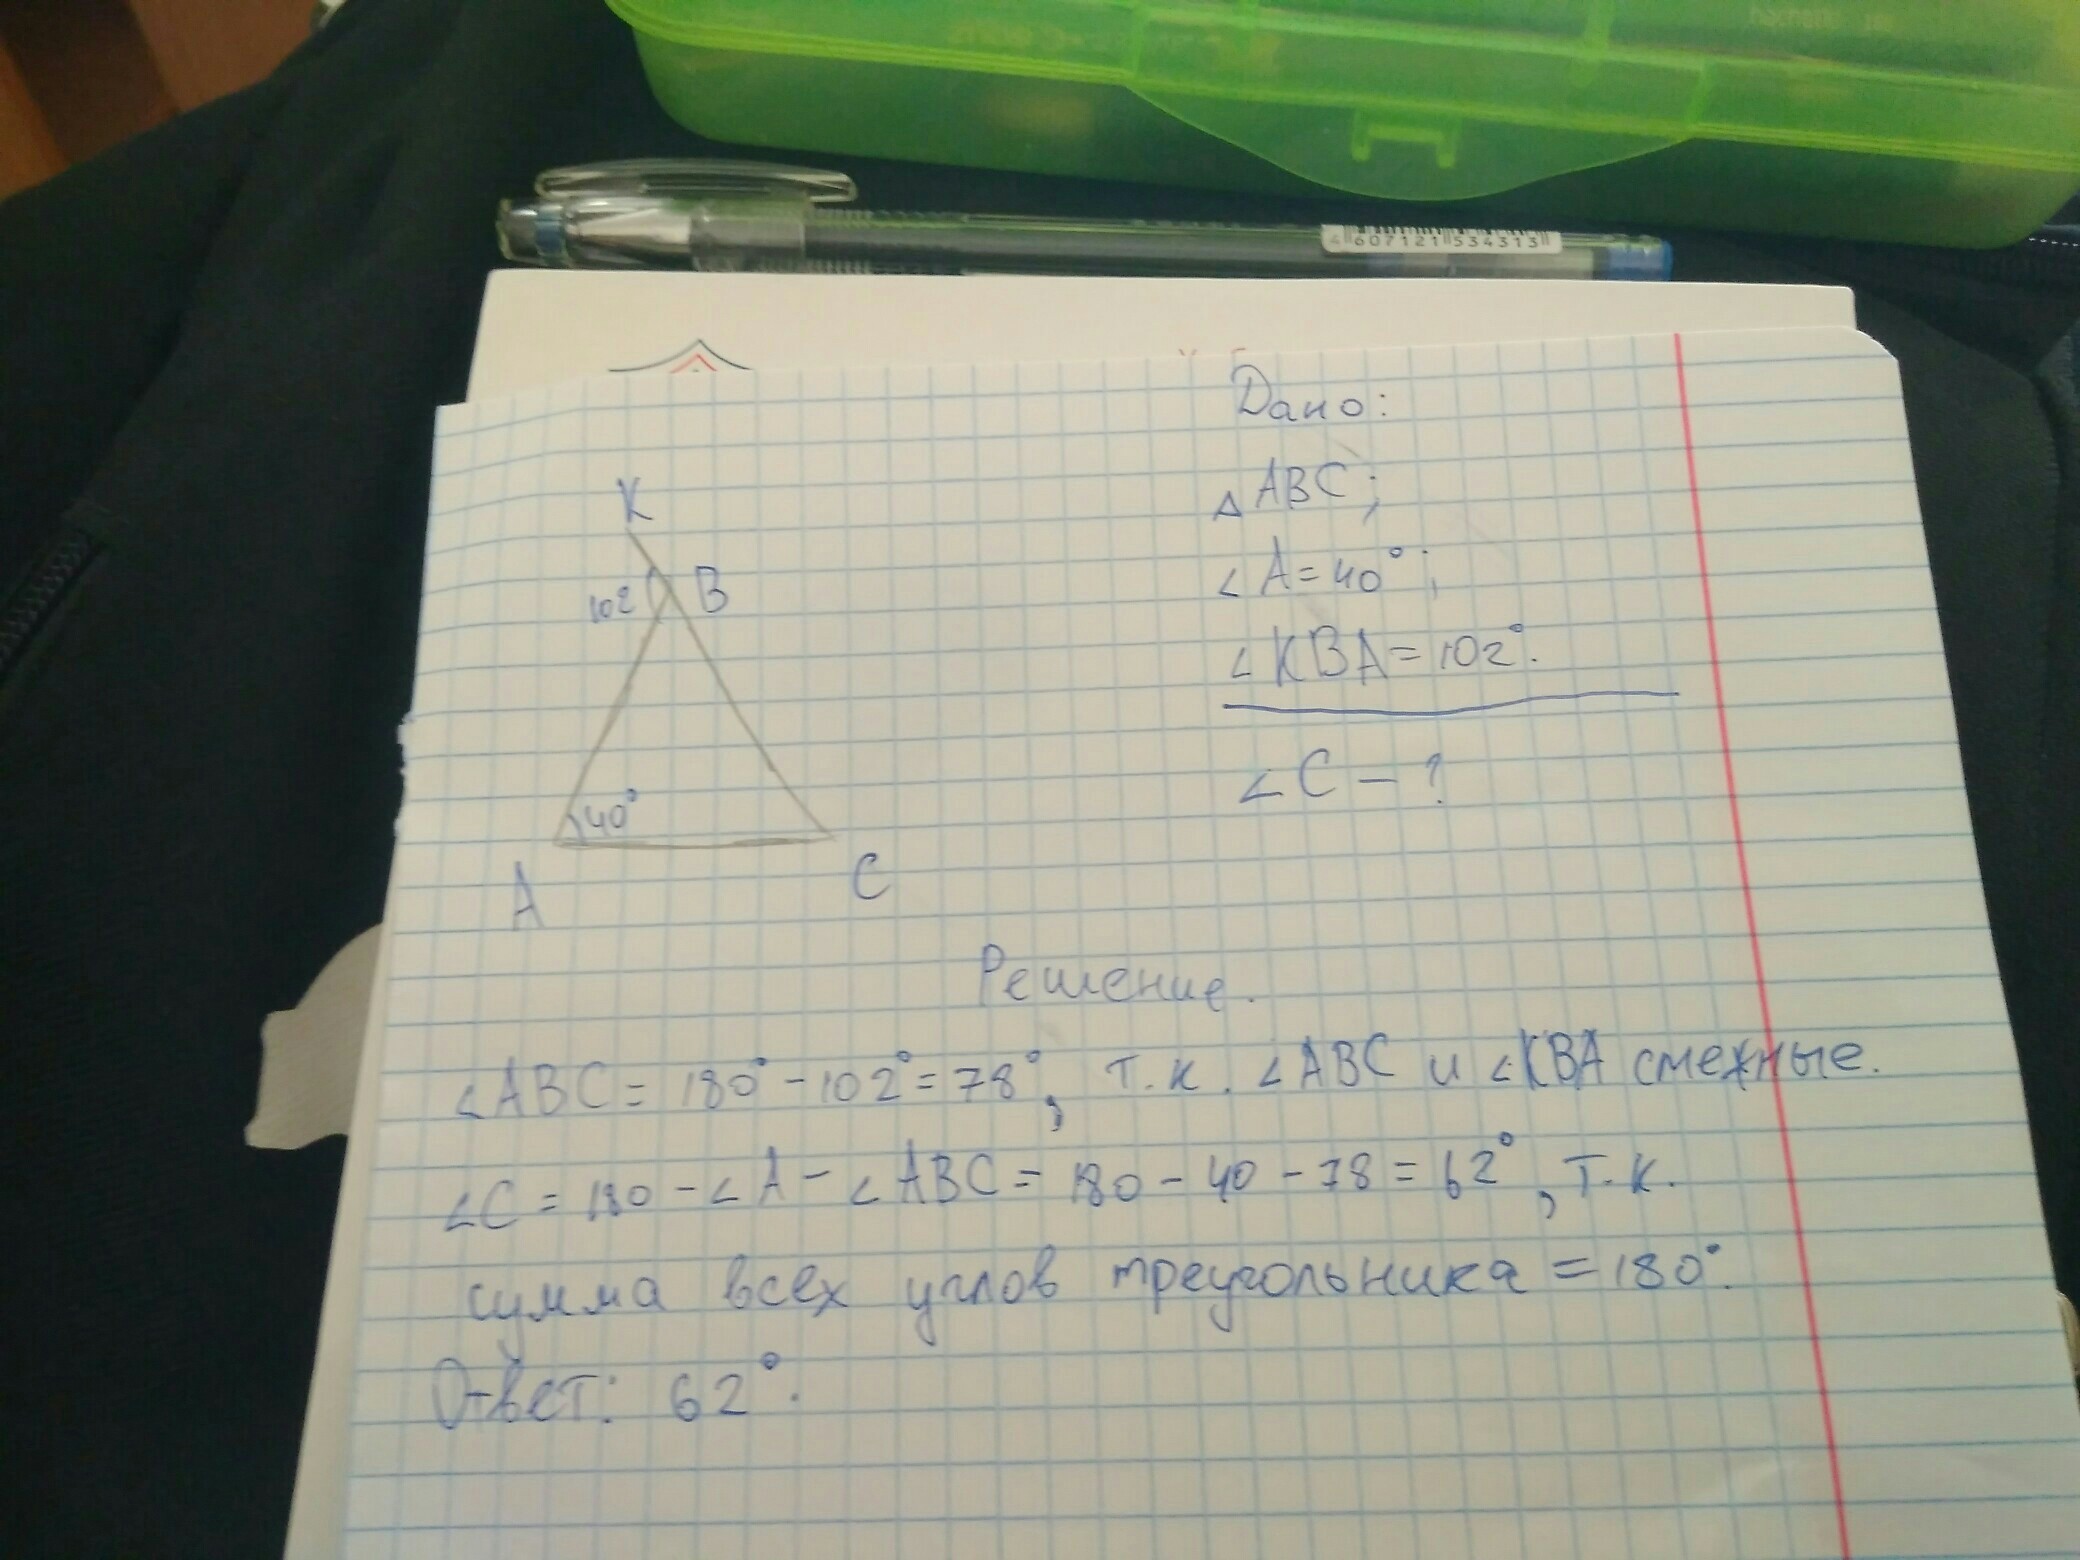 4 607121 534313
Дано:
△ABC;
∠A=40°;
∠KBA=102°.
∠C – ?
K
102
B
40°
A
C
Решение.
∠ABC = 180° – 102° = 78°, т.к. ∠ABC и ∠KBA смежные.
∠C = 180 – ∠A – ∠ABC = 180 – 40 – 78 = 62°, т.к.
сумма всех углов треугольника = 180°.
Ответ: 62°.